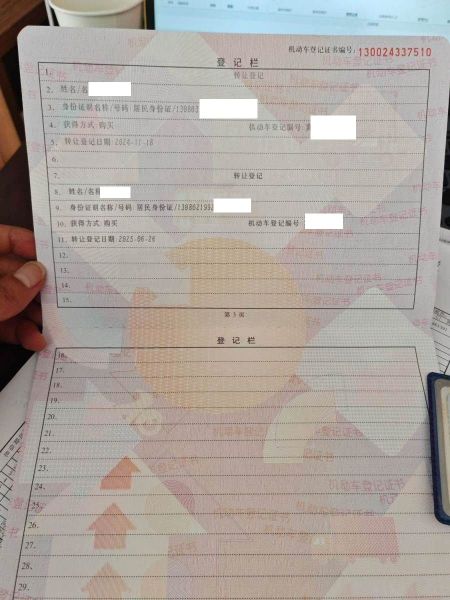 机动车登记证书编号：130024337510
登记栏
1. 转让登记
2. 姓名/名
3. 身份证明名称/号码 居民身份证/130802
4. 获得方式 购买 机动车登记编号
5. 转让登记日期 2024-11-18
6.
7. 转让登记
8. 姓名/名称
9. 身份证明名称/号码 居民身份证/130802199
10. 获得方式 购买 机动车登记编号
11. 转让登记日期 2025-06-26
12.
13.
14.
15.
第 3 页
登记栏
16.
17.
18.
19.
20.
21.
22.
23.
24.
25.
26.
27.
28.
29.
机动车登记证书